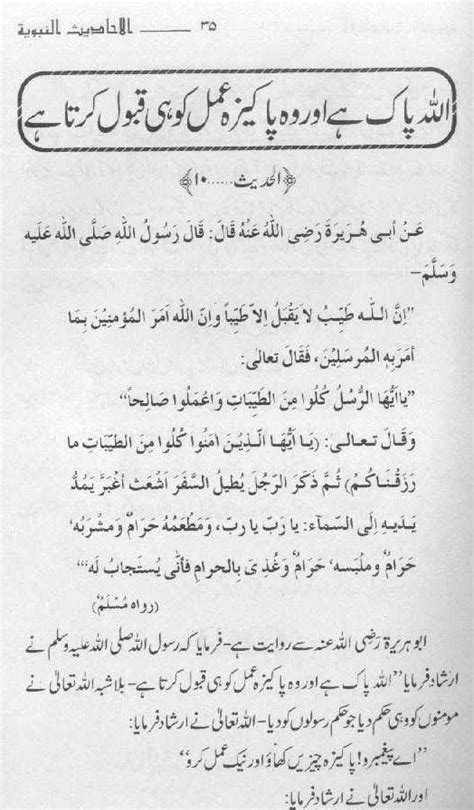 ۳۵ ــــــــ الاحادیث النبویة
اللہ پاک ہے اور وہ پاکیزہ عمل کو ہی قبول کرتا ہے
﴿الحدیث.....۱۰﴾
عَنْ أبی هُرَیرَةَ رَضِی اللهُ عَنْهُ قَالَ: قَالَ رَسُولُ اللهِ صَلَّی الله عَلَیه
وَسَلَّمَ-
”اِنَّ اللّٰـه طَیِّبٌ لاَ یَقبَلُ اِلاّ طَیِّباً وَاِنَّ الله اَمَرَ المُؤمِنِیْنَ بِمَا
أمَرَ بِهِ المُرسَلِیْنَ، فَقَالَ تعالٰی:
”یاأیُّهَا الرُّسُلُ کُلُوا مِنَ الطَیِّبَاتِ وَاعمَلُوا صَالِحاً“
وَقَالَ تـعـالـیٰ: (یَـا اَیُّهَا الَّذِیـنَ اٰمَنُوا کُلُوا مِنَ الطَّیِّبَاتِ ما
رَزَقْنَـاکُـمْ) ثُـمَّ ذَکَرَ الرَّجُلَ یُطیلُ السَّفَرَ أشعَثَ أغْبَرَ یَمُدُّ
یَـدیـهِ إلَی السَّمآءِ: یا رَبّ یا ربّ، وَمَطعَمُهُ حَرَامٌ وَمَشرَبُه‘
حَرامٌ وملبَسه‘ حَرَامٌ وَغُذِیَ بِالحرامِ فأنّٰی یُستَجابُ لَه‘“
(رواه مُسْلِم)
ابوہریرۃ رَضِی اللہ عنہ سے روایت ہے- فرمایا کہ رسول اللہ صلی اللہ علیہ وسلم نے
ارشاد فرمایا ”اللہ پاک ہے اور وہ پاکیزہ عمل کو ہی قبول کرتا ہے- بلاشبہ اللہ تعالیٰ نے
مومنوں کو وہی حکم دیا جو حکم رسولوں کو دیا- اللہ تعالیٰ نے ارشاد فرمایا:
”اے پیغمبرو! پاکیزہ چیزیں کھاؤ اور نیک عمل کرو“
اور اللہ تعالیٰ نے ارشاد فرمایا: